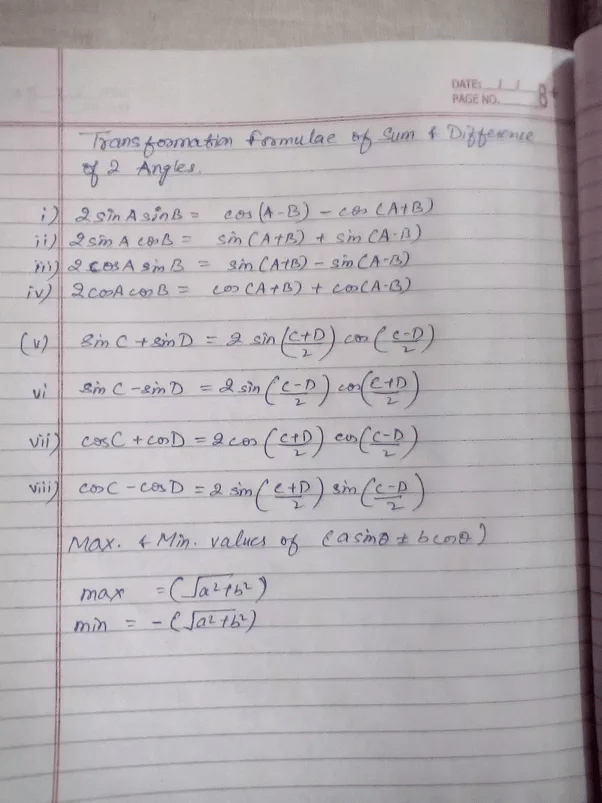 DATE: / /
PAGE NO. 8
Transformation formulae of Sum & Difference
of 2 Angles.
i) 2 sin A sin B = cos (A-B) - cos (A+B)
ii) 2 sin A cos B = sin (A+B) + sin (A-B)
iii) 2 cos A sin B = sin (A+B) - sin (A-B)
iv) 2 cos A cos B = cos (A+B) + cos (A-B)
(v) sin C + sin D = 2 sin ((C+D)/2) cos ((C-D)/2)
vi sin C - sin D = 2 sin ((C-D)/2) cos ((C+D)/2)
vii) cos C + cos D = 2 cos ((C+D)/2) cos ((C-D)/2)
viii) cos C - cos D = 2 sin ((C+D)/2) sin ((C-D)/2)
Max. & Min. values of (a sinθ ± b cosθ)
max = (√a²+b²)
min = - (√a²+b²)